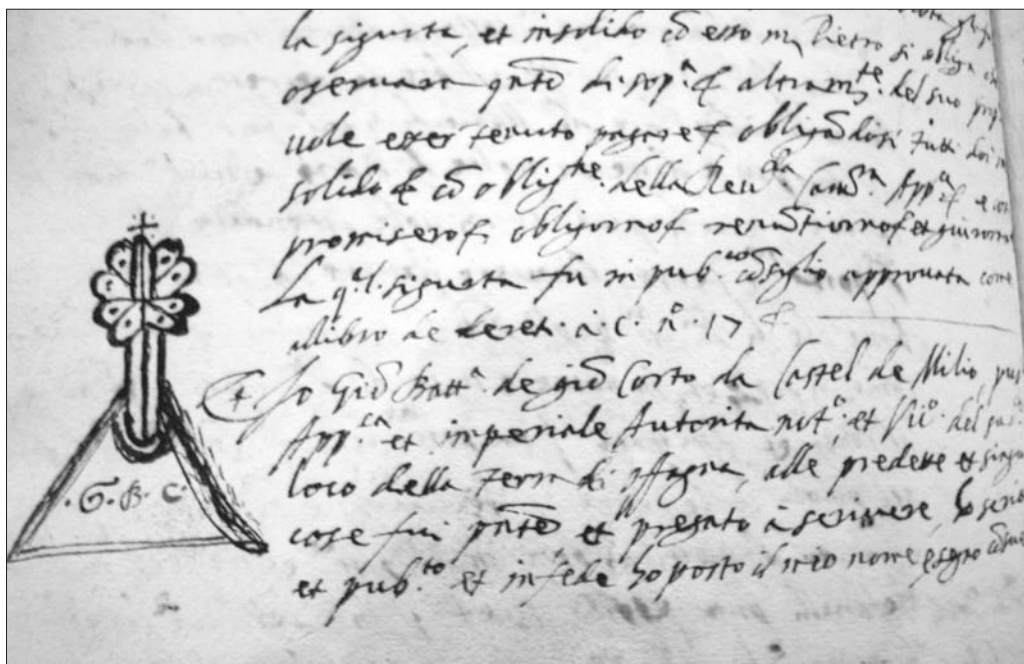 la sigurta, et insolido cō esso m Pietro si obliga
osservara qnto di sop.a & altram.te del suo prop
vole esser tenuto pagare & obligādosi tutti doi in
solido & cō oblig.ne della Reu.da Cam.a App.ca &
promisero & obligorno & renūtiorno & et giurorno
La q.l sigurta fu in pub.co cōsiglio approvata come
allibro de decreti a c. n.o 17 &
Et Io Giō Batt.a de giō Corto da Castel de Milio, pu
App.ca et imperiale Autorita not.o et Vic.o del
loco della terra di Offagna, alle predette et sing
cose fui pnte et pregato a scrivere, ho scri
et pub.to et in fede ho posto il mio nome e segno
.G. B. C.